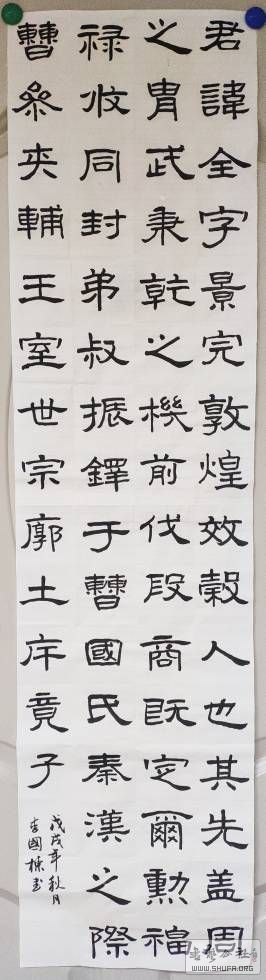 君諱全字景完敦煌效穀人也其先盖周
之胄武秉乾之機前伐殷商既定爾勳福
禄攸同封弟叔振鐸于曹國氏秦漢之際
曹參夾輔王室世宗廓土斥竟子
戊戌年秋月
李國棟书
WWW.SHUFA.ORG